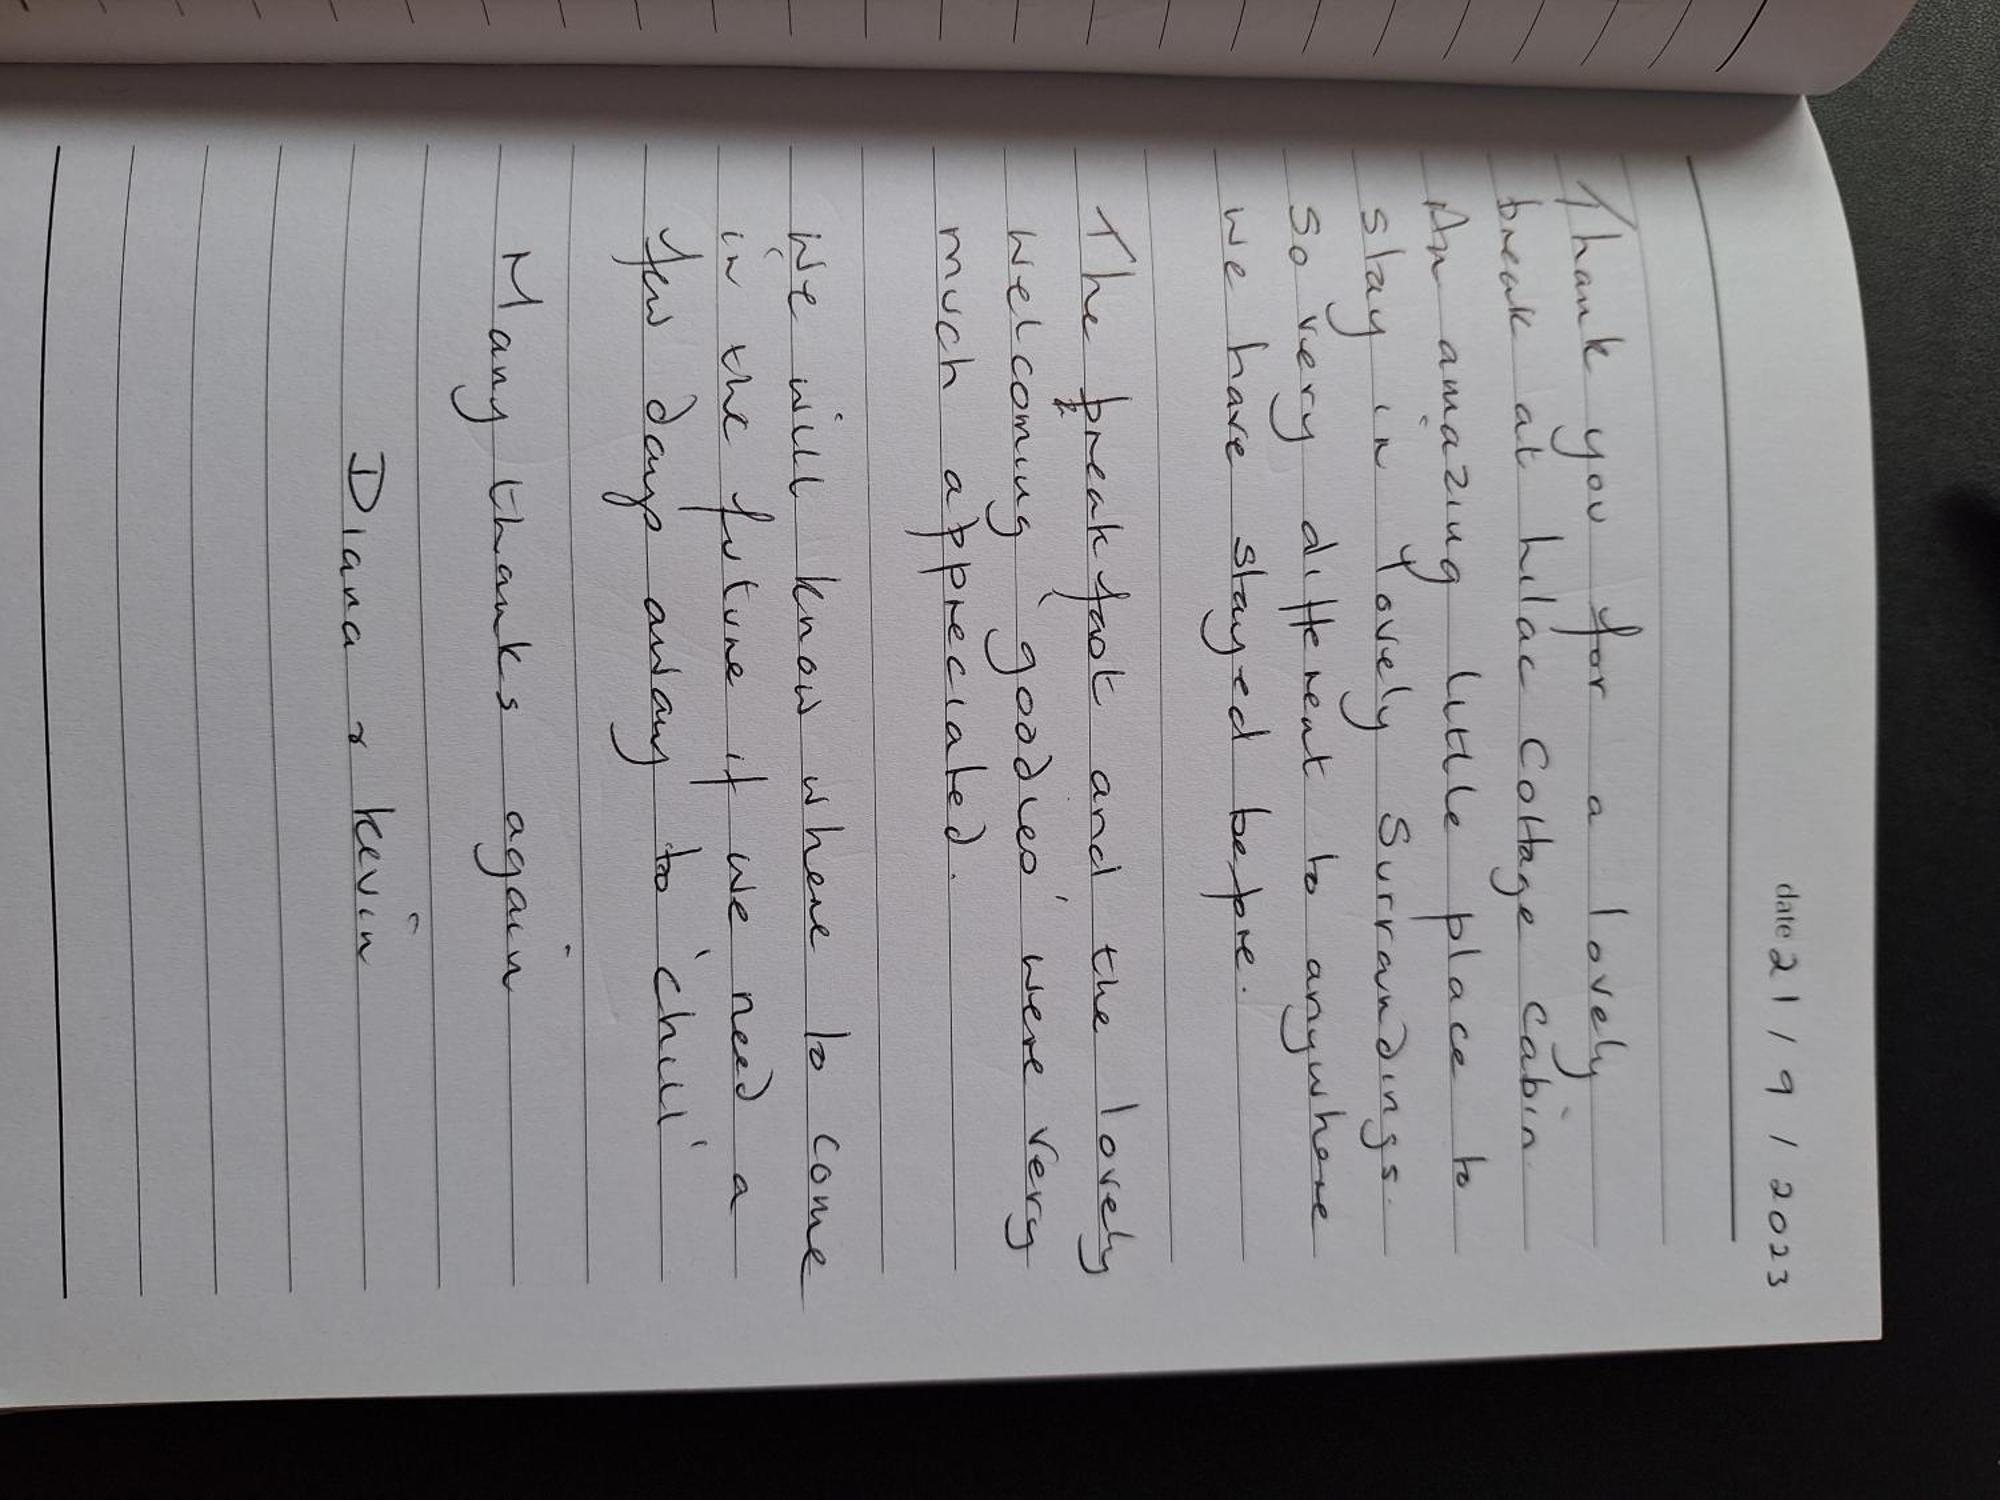 date 21 / 9 / 2023
Thank you for a lovely
break at Lilac Cottage Cabin.
An amazing little place to
stay in lovely Surrandings.
So very different to anywhere
we have stayed before.
The breakfast and the lovely
welcoming 'goodies' were very
much appreciated.
We will know where to come
in the future if we need a
few days away to 'chill'
Many thanks again
Diana & Kevin